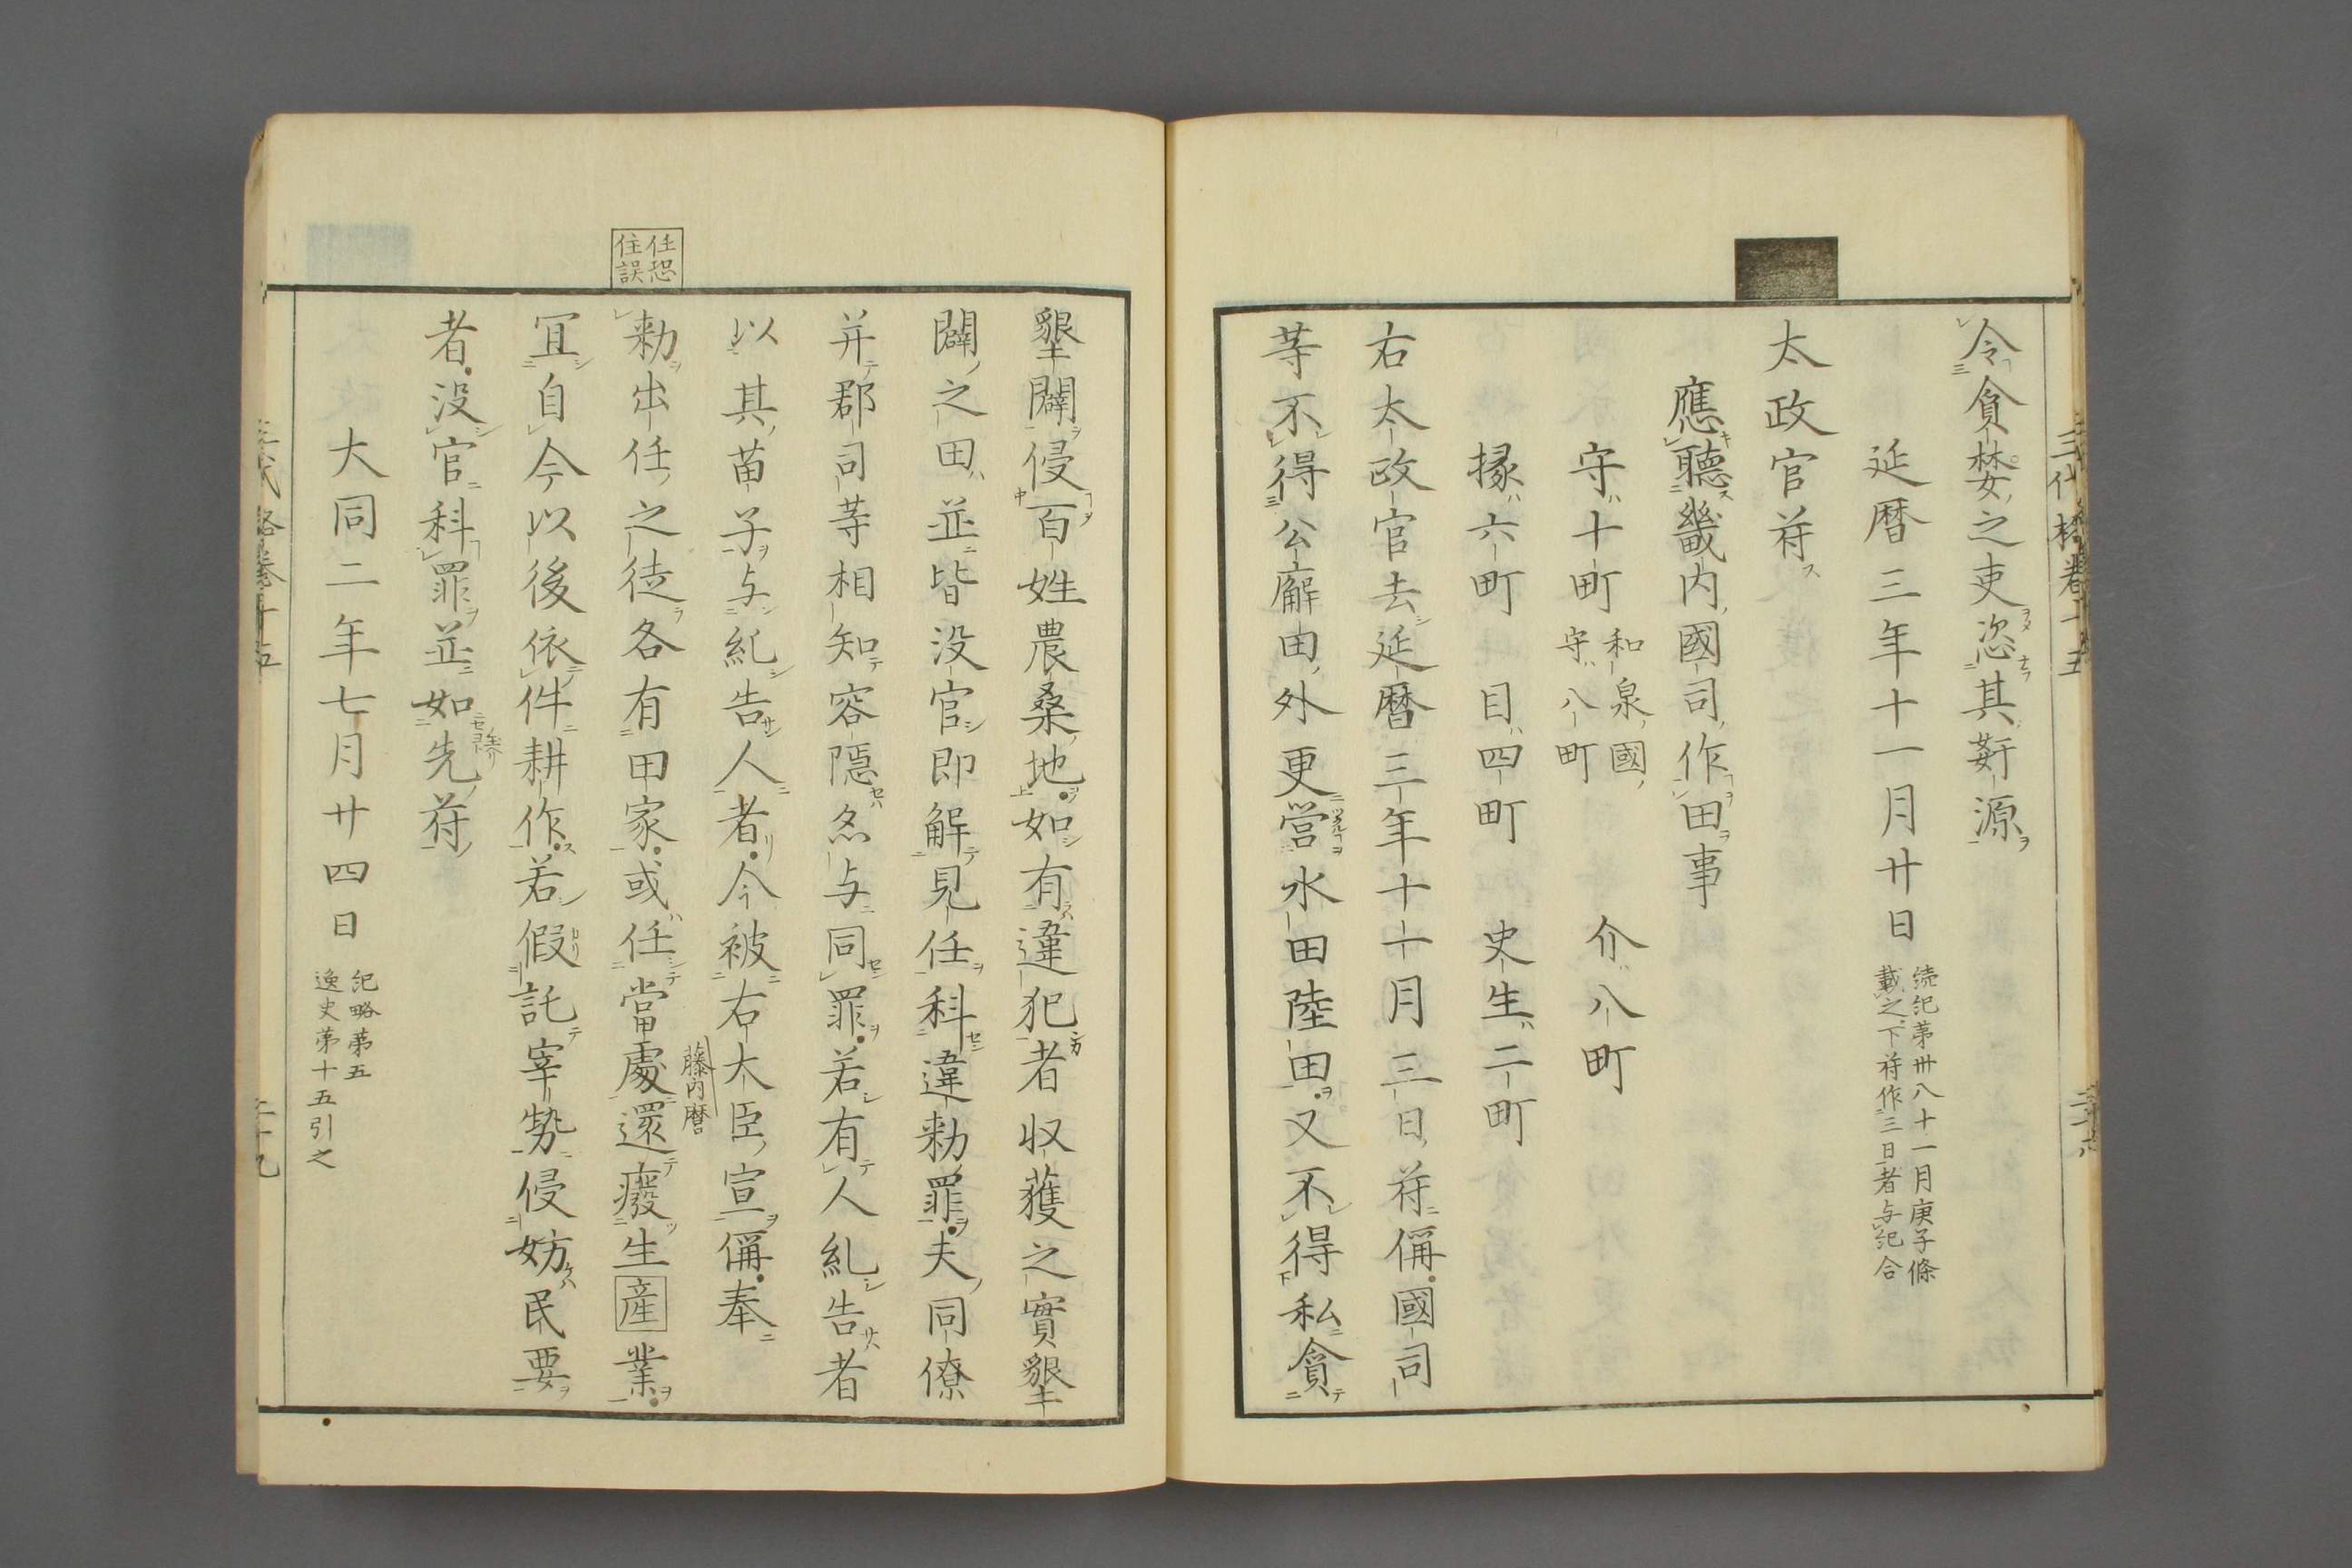 令貪婪之吏恣其姧源
延暦三年十一月廿日
続紀第卅八十一月庚子條
載之下符作三日者与紀合
太政官符
應聽畿内國司作田事
守十町
和泉國
守八町
介八町
掾六町 目四町 史生二町
右太政官去延暦三年十十月三日符偁國司
等不得公廨田外更営水田陸田又不得私貪
墾闢侵百姓農桑地如有違犯者収獲之實墾
闢之田並皆没官即解見任科違勅罪夫同僚
并郡司等相知容隠亦与同罪若有人糺告者
以其苗子与糺告人者今被右大臣宣偁奉
藤内麿
勅出任之徒各有甲家或任當處還癈生産業
任恐
住誤
冝自今以後依件耕作若假託宰勢侵妨民要
者没官科罪並如先符
大同二年七月廿四日
紀略第五
逸史第十五引之